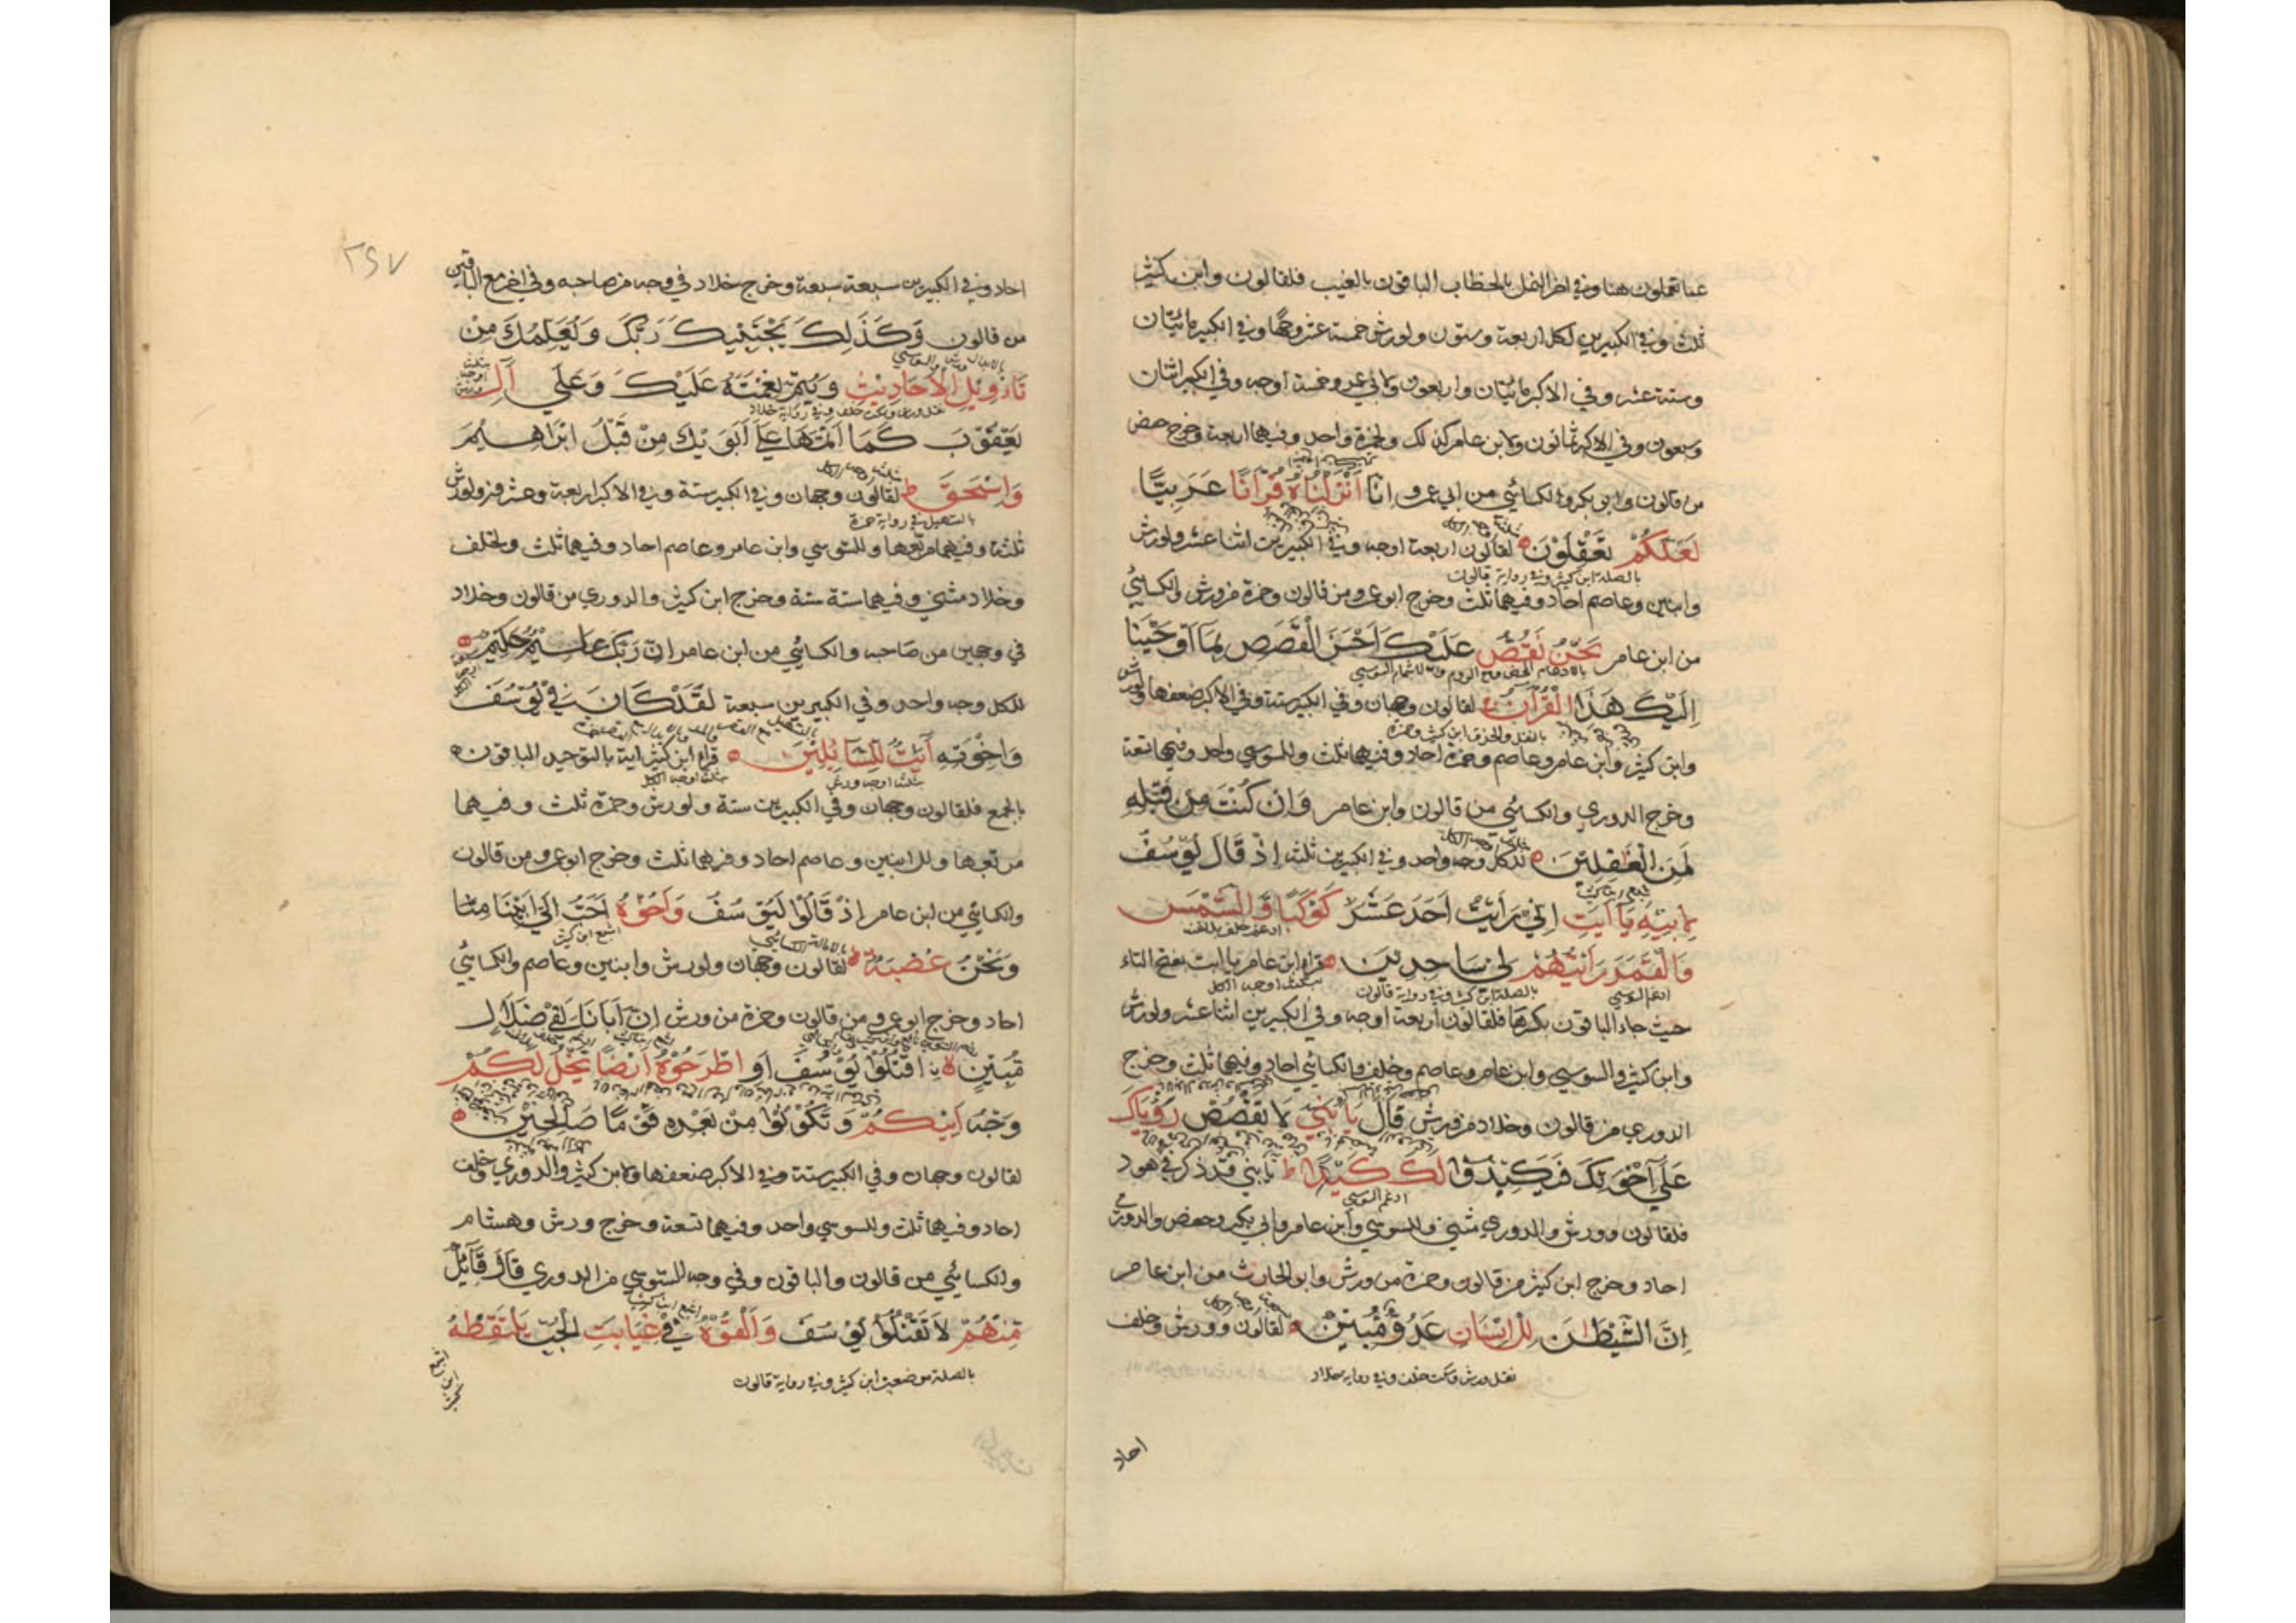 عما تعملون هنا وفي اخر النمل بالخطاب الباقون بالغيب فلقالون وابن كثير
ثلث وفي الكبيرين لكل اربعة وستون ولورش خمسة عشر وجها وفي الكبير مائتان
وستة عشر وفي الاكبر مائتان واربعون ولابي عمرو خمسة اوجه وفي الكبير اثنان
وسبعون وفي الاكبر ثمانون ولابن عامر كذلك ولحمزة واحد وفيهما اربعة وخرج حفص
من قالون وابو بكر والكسائي من ابي عمرو اِنَّا اَنْزَلْنَاهُ قُرْآنًا عَرَبِيًّا
لَعَلَّكُمْ تَعْقِلُوْنَ لقالون اربعة اوجه وفي الكبيرين اثنا عشر ولورش
بالصلة ابن كثير وفي رواية قالون
وابنين وعاصم احاد وفيهما ثلث وخرج ابو عمرو من قالون وحمزة من ورش والكسائي
من ابن عامر نَحْنُ نَقُصُّ عَلَيْكَ اَحْسَنَ الْقَصَصِ بِمَا اَوْحَيْنَا
اِلَيْكَ هَذَا الْقُرْآنَ لقالون وجهان وفي الكبير ستة وفي الاكبر ضعفها ولورش
بالنقل والحذف ابن كثير وحمزة
وابن كثير وابن عامر وعاصم وحمزة احاد وفيهما ثلث وللسوسي واحد وفيهما تسعة
وخرج الدوري والكسائي من قالون وابن عامر وَاِنْ كُنْتَ مِنْ قَبْلِهِ
لَمِنَ الْغٰفِلِيْنَ للكل وجه واحد وفي الكبيرين ثلثة اِذْ قَالَ يُوْسُفُ
لِاَبِيْهِ يَا اَبَتِ اِنِّيْ رَاَيْتُ اَحَدَ عَشَرَ كَوْكَبًا وَّالشَّمْسَ
وَالْقَمَرَ رَاَيْتُهُمْ لِيْ سَاجِدِيْنَ قراء ابن عامر يا ابت بفتح التاء
ادغم السوسي بالصلة ابن كثير وفي رواية قالون
حيث جاء الباقون بكسرها فلقالون اربعة اوجه وفي الكبيرين اثنا عشر ولورش
وابن كثير والسوسي وابن عامر وعاصم وخلف والكسائي احاد وفيهما ثلث وخرج
الدوري من قالون وخلاد من ورش قَالَ يَا بُنَيَّ لَا تَقْصُصْ رُؤْيَاكَ
عَلَى اِخْوَتِكَ فَيَكِيْدُوْا لَكَ كَيْدًا ط يا بني قد ذكر في هود
ادغم السوسي
فلقالون وورش والدوري مثنى وللسوسي وابن عامر وابي بكر وحفص والدوري
احاد وخرج ابن كثير من قالون وحمزة من ورش وابو الحارث من ابن عامر
اِنَّ الشَّيْطٰنَ لِلْاِنْسَانِ عَدُوٌّ مُّبِيْنٌ لقالون وورش وخلف
نقل ورش وسكت خلف وفي رواية خلاد
احاد
٢٩٧
احاد وفي الكبيرين سبعة سبعة وخرج خلاد في وجه من صاحبه وفي اخر مع الباقين
من قالون وَكَذَلِكَ يَجْتَبِيْكَ رَبُّكَ وَيُعَلِّمُكَ مِنْ
تَاْوِيْلِ الْاَحَادِيْثِ وَيُتِمُّ نِعْمَتَهُ عَلَيْكَ وَعَلَى آلِ
نقل ورش وسكت خلف وفي رواية خلاد
يَعْقُوْبَ كَمَا اَتَمَّهَا عَلَى اَبَوَيْكَ مِنْ قَبْلُ اِبْرَاهِيْمَ
وَاِسْحٰقَ ط لقالون وجهان وفي الكبير ستة وفي الاكبر اربعة وعشرون ولورش
بالتسهيل في رواية حمزة
ثلثة وفيهما مربعها وللسوسي وابن عامر وعاصم احاد وفيهما ثلث ولخلف
وخلاد مثنى وفيهما ستة ستة وخرج ابن كثير والدوري من قالون وخلاد
في وجهين من صاحبه والكسائي من ابن عامر اِنَّ رَبَّكَ عَلِيْمٌ حَكِيْمٌ
للكل وجه واحد وفي الكبيرين سبعة لَقَدْ كَانَ فِيْ يُوْسُفَ
وَاِخْوَتِهِ آيٰتٌ لِّلسَّائِلِيْنَ قراء ابن كثير اية بالتوحيد الباقون
ثلثة اوجه ورش ثلثة اوجه الكل
بالجمع فلقالون وجهان وفي الكبيرين ستة ولورش وحمزة ثلث وفيهما
مربعها وللابنين وعاصم احاد وفيهما ثلث وخرج ابو عمرو من قالون
والكسائي من ابن عامر اِذْ قَالُوْا لَيُوْسُفُ وَاَخُوْهُ اَحَبُّ اِلَى اَبِيْنَا مِنَّا
اشبع ابن كثير
وَنَحْنُ عُصْبَةٌ ط لقالون وجهان ولورش وابنين وعاصم والكسائي
احاد وخرج ابو عمرو من قالون وحمزة من ورش اِنَّ اَبَانَا لَفِيْ ضَلَالٍ
مُّبِيْنٍ اقْتُلُوْا يُوْسُفَ اَوِ اطْرَحُوْهُ اَرْضًا يَّخْلُ لَكُمْ
وَجْهُ اَبِيْكُمْ وَتَكُوْنُوْا مِنْ بَعْدِهِ قَوْمًا صَالِحِيْنَ
لقالون وجهان وفي الكبير ستة وفي الاكبر ضعفها ولابن كثير والدوري وخلف
احاد وفيهما ثلث وللسوسي واحد وفيهما تسعة وخرج ورش وهشام
والكسائي من قالون والباقون وفي وجه للسوسي من الدوري قَالَ قَآئِلٌ
مِّنْهُمْ لَا تَقْتُلُوْا يُوْسُفَ وَاَلْقُوْهُ فِيْ غَيَابَتِ الْجُبِّ يَلْتَقِطْهُ
بالصلة موضعين ابن كثير وفي رواية قالون